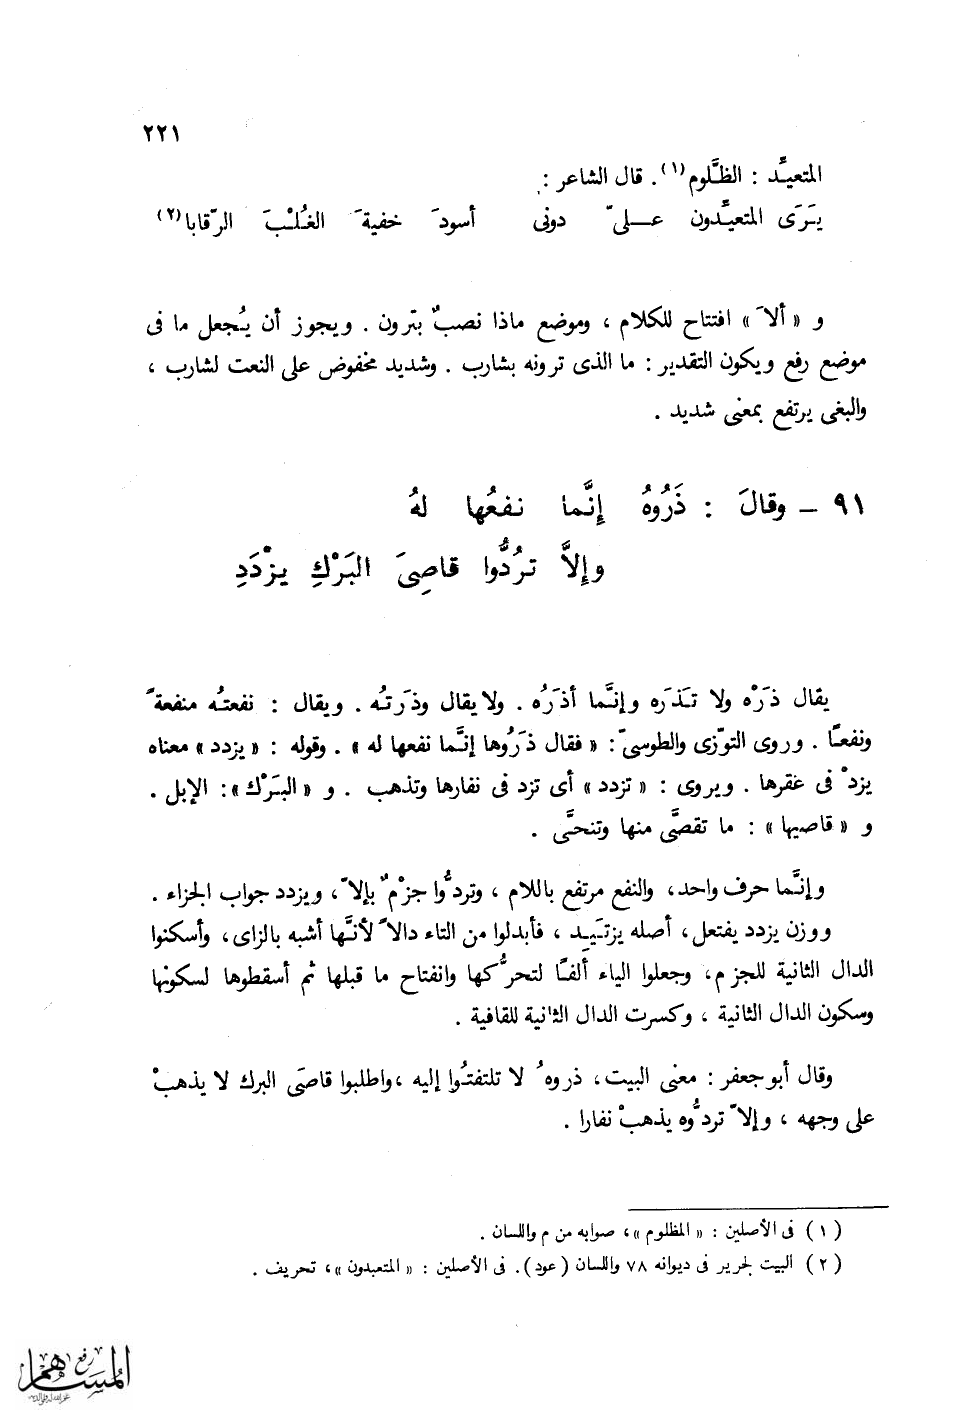 ٢٢١
المتعيِّد : الظَّلوم(١) . قال الشاعر :
يَرَى المتعيِّدون علىّ دونى أسودَ خفيةَ الغُلْبَ الرّقابا(٢)
و « ألاَ » افتتاح للكلام ، وموضع ماذا نصبٌ بترون . ويجوز أن يُجعل ما فى
موضع رفع ويكون التقدير : ما الذى ترونه بشارب . وشديد مخفوض على النعت لشارب ،
والبغى يرتفع بمعنى شديد .
٩١ – وقالَ : ذَرُوهُ إِنَّما نفعُها لهُ
وإِلاَّ تردُّوا قاصِىَ البَرْكِ يزْدَدِ
يقال ذَرْه ولا تَذَره وإنَّما أذَرُه . ولا يقال وذَرتُه . ويقال : نفعتُه منفعةً
ونفعًا . وروى التوّزى والطوسىّ : « فقال ذَرُوها إنَّما نفعها له » . وقوله : « يزدد » معناه
يزدْ فى عقرها . ويروى : « تزدد » أى تزد فى نفارها وتذهب . و « البَرْك » : الإبل .
و « قاصيها » : ما تقصَّى منها وتنحَّى .
وإنَّما حرف واحد، والنفع مرتفع باللام ، وتردُّوا جزْمٌ بإلاّ ، ويزدد جواب الجزاء .
ووزن يزدد يفتعل، أصله يزتَيِد ، فأبدلوا من التاء دالاً لأنَّها أشبه بالزاى، وأسكنوا
الدال الثانية للجزم، وجعلوا الياء ألفًا لتحرُّكها وانفتاح ما قبلها ثم أسقطوها لسكونها
وسكون الدال الثانية ، وكسرت الدال الثانية للقافية .
وقال أبو جعفر : معنى البيت، ذروهُ لا تلتفتُوا إليه ،واطلبوا قاصَى البرك لا يذهبْ
على وجهه ، وإلاّ تردُّوه يذهبْ نفارا .
(١) فى الأصلين : « المظلوم »، صوابه من م واللسان .
(٢) البيت لجرير فى ديوانه ٧٨ واللسان (عود). فى الأصلين : « المتعبدون »، تحريف .